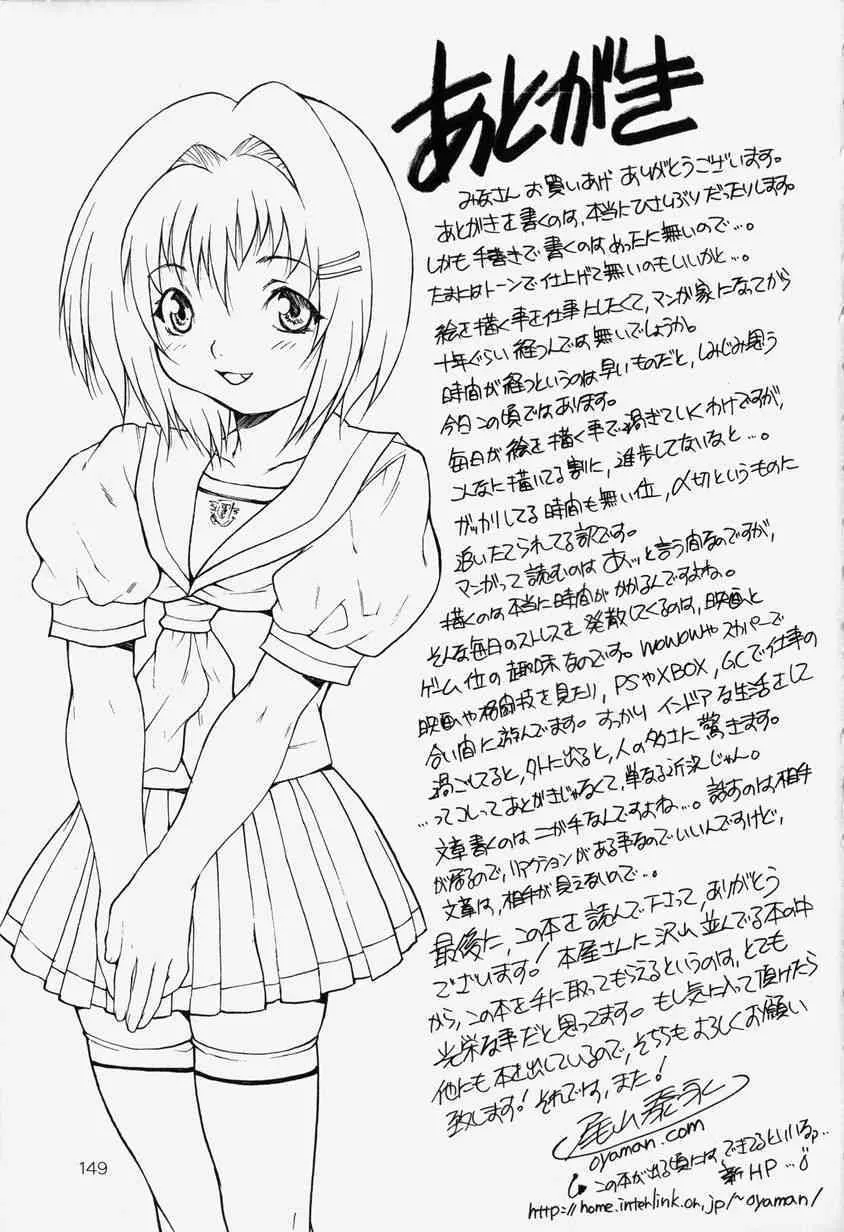 あとがき
みなさん お買いあげ ありがとうございます。
あとがきを書くのは、本当にひさしぶりだったりします。
しかも 手書きで書くのはめったに無いので…。
たまにはトーンで仕上げて無いのもいいかと…。
絵を描く事を仕事にしたくて、マンガ家になってから
十年ぐらい経つんでは無いでしょうか。
時間が経つというのは早いものだと、しみじみ思う
今日この頃ではあります。
毎日が絵を描く事で過ぎていくわけですが、
こんなに描いてる割に、進歩してないなと…。
ガッカリしてる時間も無い位、〆切というものに
追いたてられてる訳です。
マンガって読むのは あッと言う間なのですが、
描くのは本当に時間がかかるんですよね。
そんな毎日のストレスを発散してくるのは、映画と
ゲーム位の趣味なのです。WOWOWやスカパーで
映画や格闘技を見たり、PSやXBOX、GCで仕事の
合い間に遊んでます。すっかりインドアな生活をして
過ごしてると、外に出ると、人の多さに驚きます。
…ってコレってあとがきじゃなくて、単なる近況じゃん。
文章書くのはニガ手なんですよね…。話すのは、相手
が居るので、リアクションがある事なのでいいんですけど、
文章は、相手が見えないので…。
最後に、この本を読んで下さって、ありがとう
でございます! 本屋さんに沢山並んでる本の中
から、この本を手に取ってもらえるというのは、とても
光栄な事だと思ってます。もし気に入って頂けたら
他にも本を出しているので、そちらもよろしくお願い
致します! それでは、また!
尾山泰永
oyaman.com
この本が出る頃には、できてるといいな…
新HP…
http://home.interlink.or.jp/~oyaman/
149